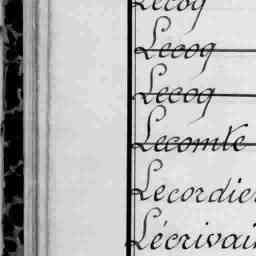 Lecoq
Lecoq
Lecoq
Lecomte
Lecordier
Lécrivain